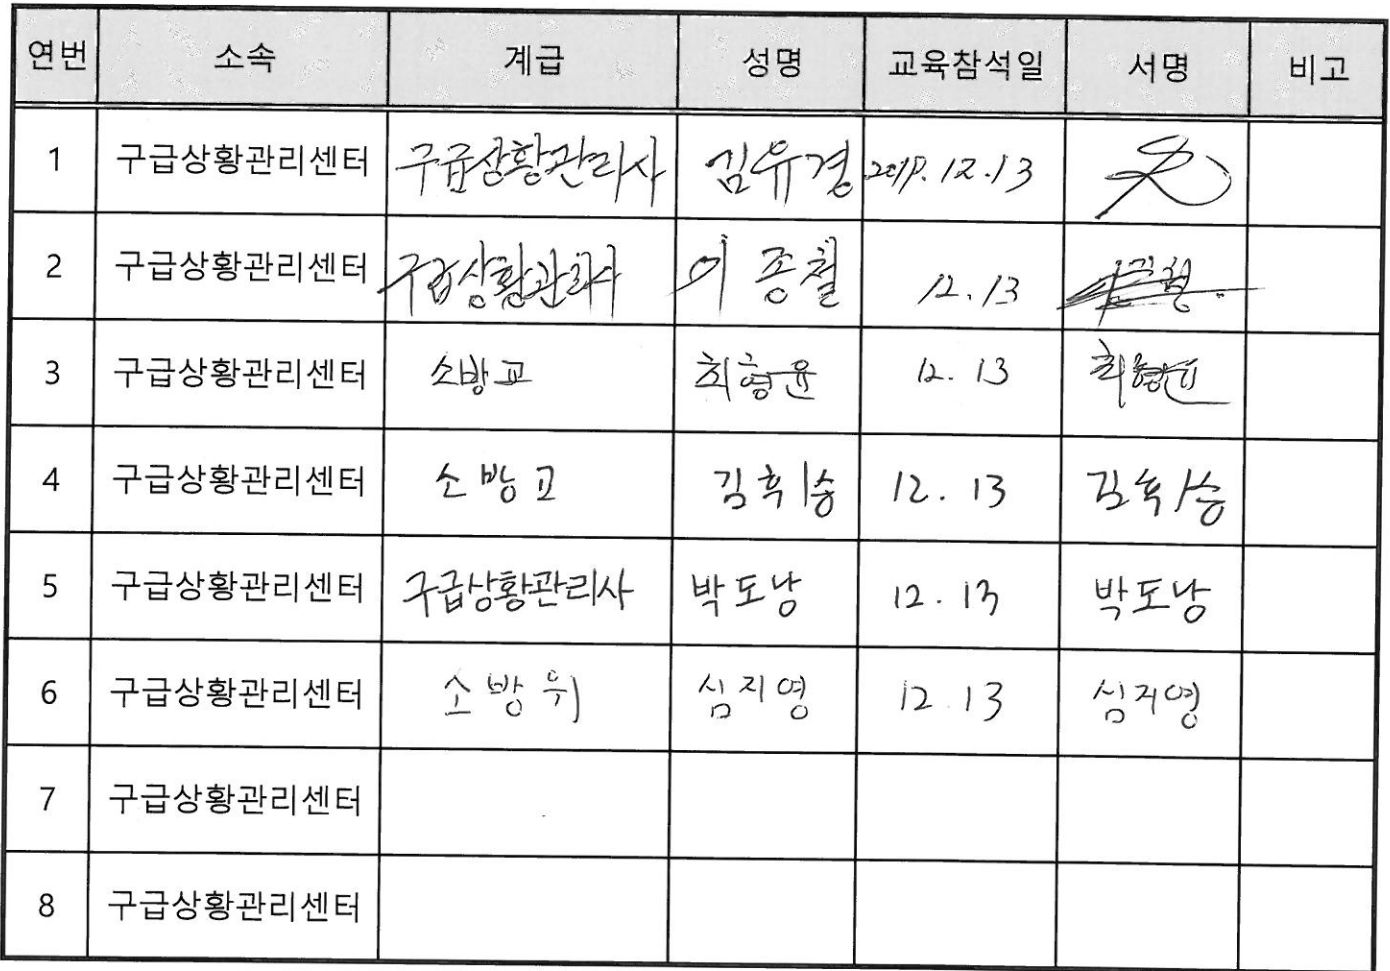 연번 소속 계급 성명 교육참석일 서명 비고
1 구급상황관리센터 구급상황관리사 김유경 2019.12.13
2 구급상황관리센터 구급상황관리사 이종철 12.13
3 구급상황관리센터 소방교 최형윤 12.13 최형윤
4 구급상황관리센터 소방교 김휘승 12.13 김휘승
5 구급상황관리센터 구급상황관리사 박도낭 12.13 박도낭
6 구급상황관리센터 소방위 심지영 12 13 심지영
7 구급상황관리센터
8 구급상황관리센터